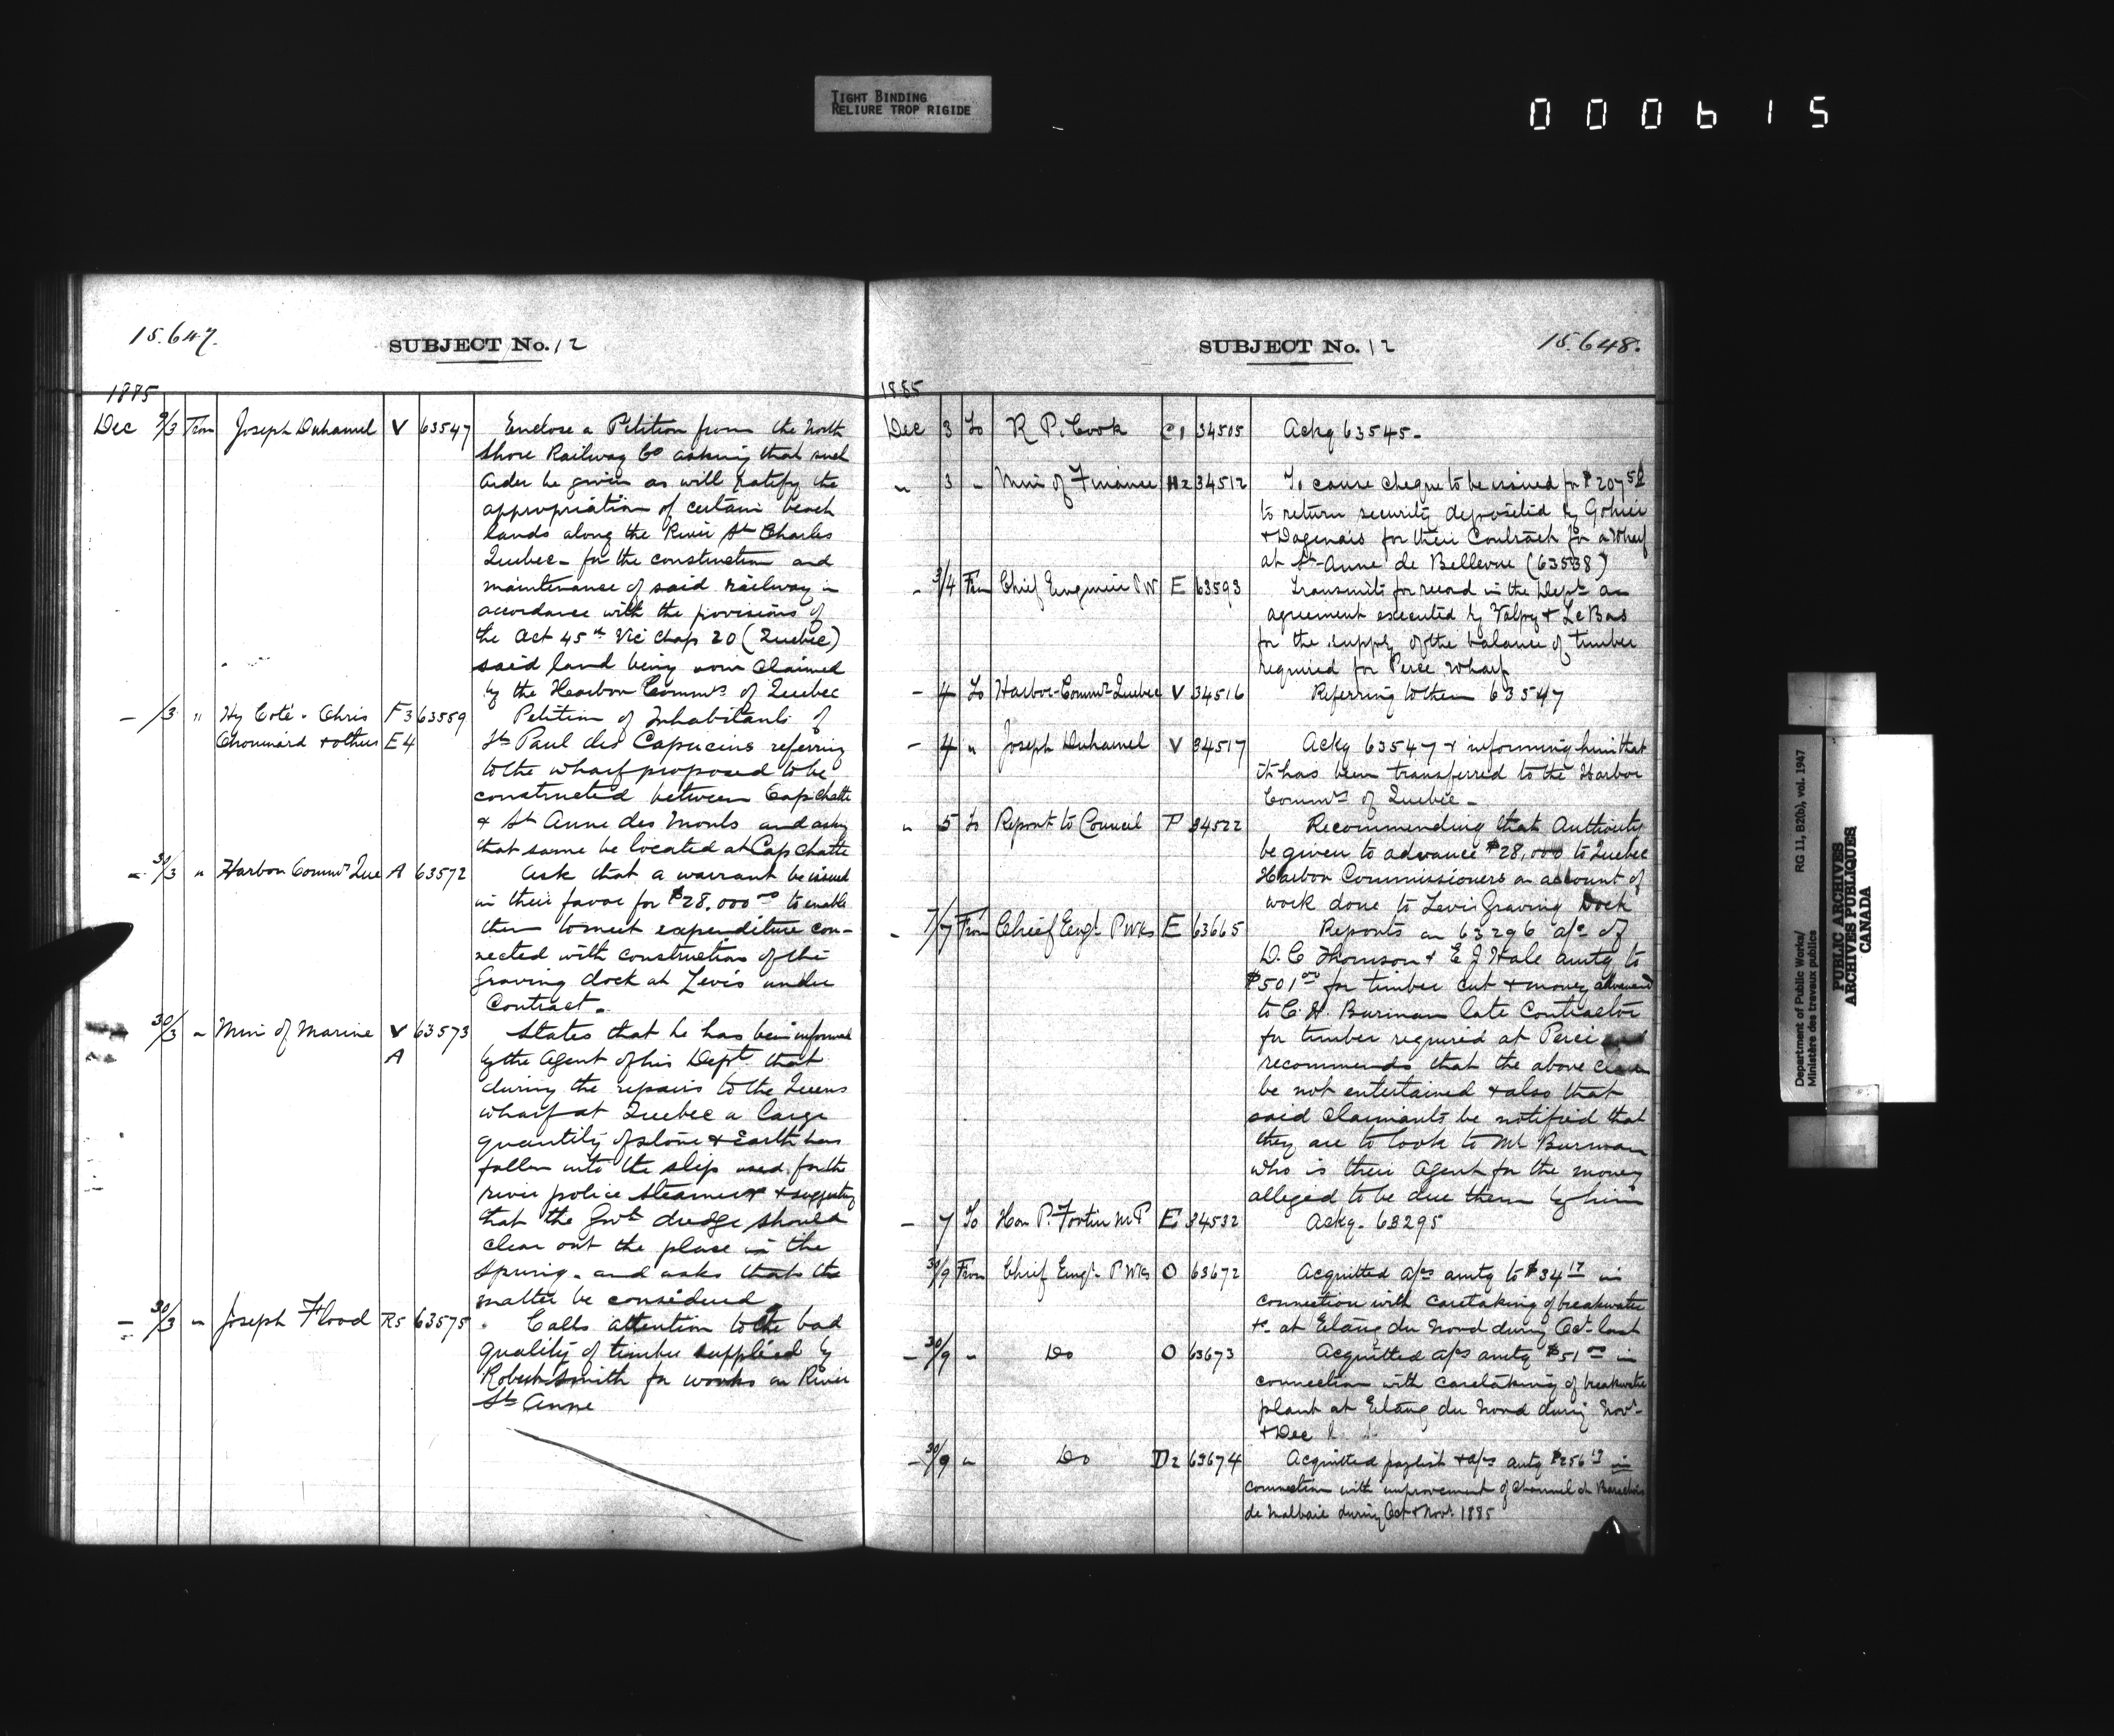 TIGHT BINDING
RELIURE TROP RIGIDE
000615
15.647.
SUBJECT No. 12
1885
Dec 9/3 From Joseph Duhamel V 63547 Enclose a Petition from the North
Shore Railway Co asking that such
order be given as will ratify the
appropriation of certain beach
lands along the River St Charles
Quebec - for the construction and
maintenance of said railway in
accordance with the provisions of
the Act 45th Vic Chap 20 (Quebec)
said land being now claimed
by the Harbor Commrs of Quebec
- /3 " Hy Coté - Chris F3 63559 Petition of Inhabitants of
Chouinard & others E4 St Paul des Capucins referring
to the wharf proposed to be
constructed between Cap Chatte
& St Anne des Monts and ask
that same be located at Cap Chatte
- 30/3 " Harbor Commrs Que A 63572 Ask that a warrant be issued
in their favor for $28,000 00 to enable
them to meet expenditure con-
nected with construction of the
Graving dock at Levis under
Contract.
30/3 " Min of Marine V 63573 States that he has been informed
A by the Agent of his Dept that
during the repairs to the Queens
wharf at Quebec a large
quantity of stone & earth has
fallen into the slip used for the
river police steamer & suggesting
that the Govt dredge should
clear out the place in the
Spring - and asks that the
matter be considered
- 30/3 " Joseph Flood R5 63575 Calls attention to the bad
quality of timber supplied by
Robert Smith for works on River
St Anne
SUBJECT No. 12
15.648.
1885
Dec 3 To R P. Cook C1 34505 Ackg 63545 -
" 3 " Min of Finance H2 34512 To cause cheque to be issued for $207 50
to return security deposited by Gohier
& Dagenais for their Contract for a Wharf
at St Anne de Bellevue (63538)
- 3/4 From Chief Engineer PW E 63593 Transmits for record in the Dept an
agreement executed by Valpy & Le Bas
for the supply of the balance of timber
required for Percé Wharf
- 4 To Harbor Commrs Quebec V 34516 Referring to them 63547
- 4 " Joseph Duhamel V 34517 Ackg 63547 & informing him that
it has been transferred to the Harbor
Commrs of Quebec -
" 5 To Report to Council P 34522 Recommending that Authority
be given to advance $28,000 to Quebec
Harbor Commissioners on account of
work done to Levis Graving Dock
- 7/7 From Chief Engr P Wks E 63665 Reports on 63296 a/c of
D. C Thomson & E J Hale amtg to
$501 00 for timber cut & money advanced
to C. H. Burman late Contractor
for timber required at Percé and
recommends that the above claim
be not entertained & also that
said claimants be notified that
they are to look to Mr Burman
who is their Agent for the money
alleged to be due them by him
- 7 To Hon P. Fortin M P E 34532 Ackg - 63295
30/9 From Chief Engr P Wks O 63672 Acquitted a/cs amtg to $34 17 in
connection with caretaking of breakwater
&c at Etang du Nord during Oct last
- 30/9 " Do O 63673 Acquitted a/cs amtg $51 00 in
connection with caretaking of breakwater
plant at Etang du Nord during Novr
& Dec
- 30/9 " Do D2 63674 Acquitted paylist & a/cs amtg $256 19 in
connection with improvement of Channel at Barachois
de Malbaie during Oct & Novr 1885
Department of Public Works/
Ministère des travaux publics
RG 11, B2(b), vol. 1947
PUBLIC ARCHIVES
ARCHIVES PUBLIQUES
CANADA